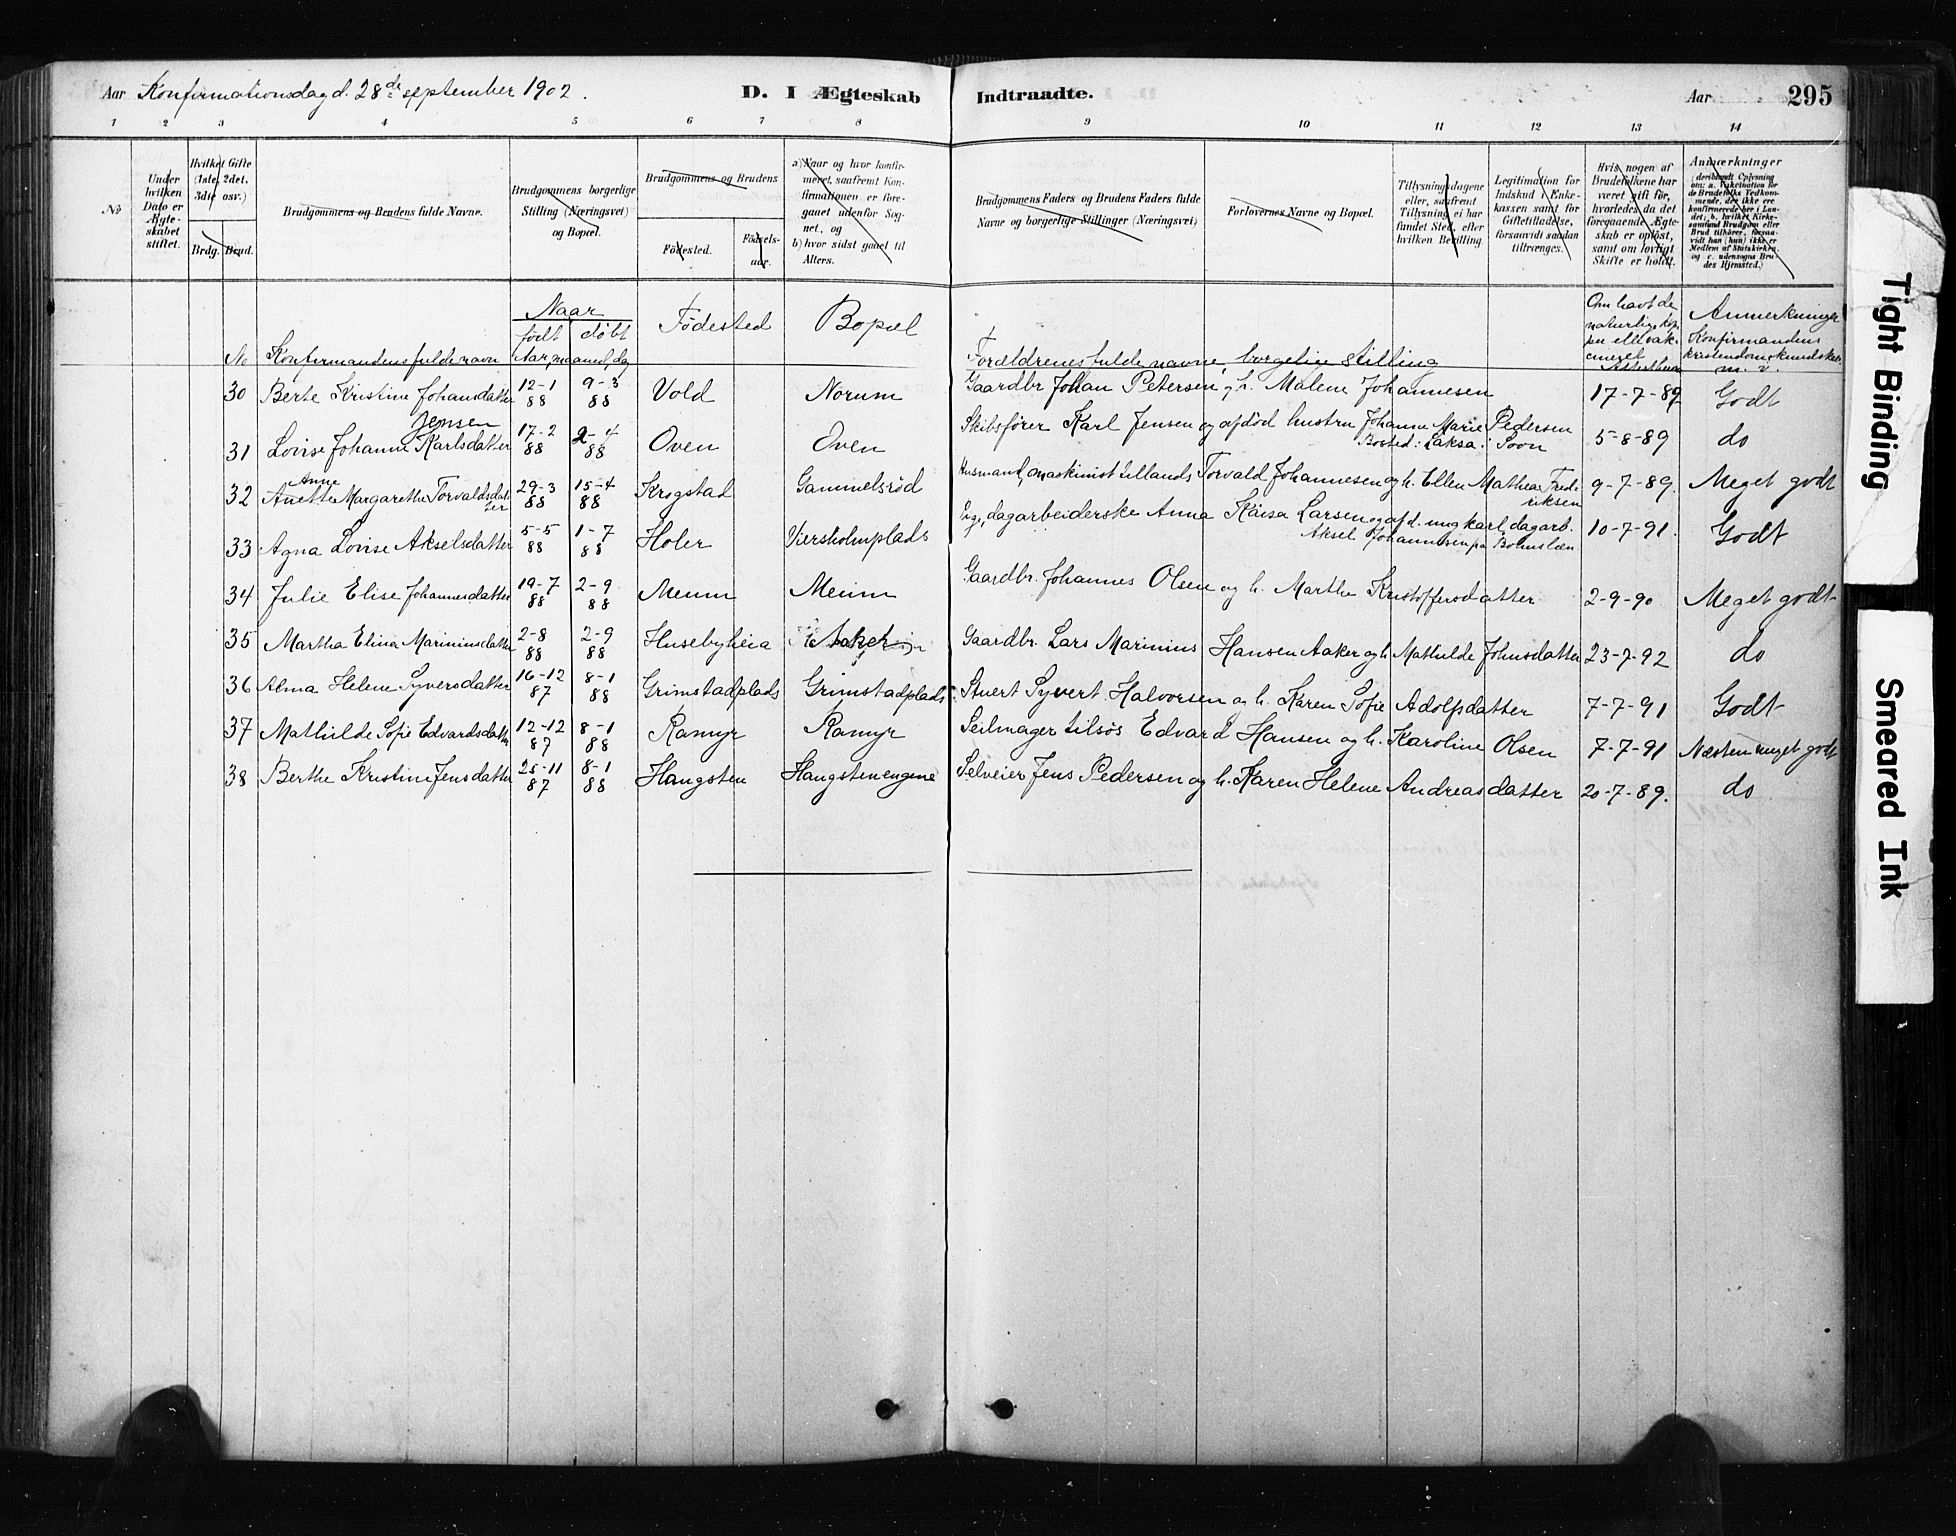 Aar Konfirmationsdag d. 28de september 1902. D. I Ægteskab Indtraadte. Aar 295
1 2 3 4 5 6 7 8 9 10 11 12 13 14
No
Under hvilken Dato er Ægteskabet stiftet.
Hvilket Gifte (1ste, 2det, 3die osv.)
Brdg. Brud.
Brudgommens og Brudens fulde Navne.
Brudgommens borgerlige Stilling (Næringsvei) og Bopæl.
Brudgommens og Brudens
Födested.
Födselsaar.
a) Naar og hvor konfirmeret, saafremt Konfirmationen er foregaaet udenfor Sognet, og
b) hvor sidst gaaet til Alters.
Brudgommens Faders og Brudens Faders fulde Navne og borgerlige Stillinger (Næringsvei)
Forlovernes Navne og Bopæl.
Tillysningsdagene eller, saafremt Tillysning ei har fundet Sted, efter hvilken Bevilling.
Legitimation for Indskud i Enkekassen samt for Giftetilladelse, forsaavidt saadan tiltrænges.
Hvis nogen af Brudefolkene har været gift för, hvorledes da det foregaaende Ægteskab er oplöst, samt om lovligt Skifte er holdt.
Anmærkninger (deriblandt Oplysning om: a. Vakcination for de Brudefolks Vedkommende, der ikke ere konfirmerede her i Landet; b. hvilket Kirkesamfund Brudgom eller Brud tilhörer, forsaavidt han (hun) ikke er Medlem af Statskirken, og c. udensogns Brudes Hjemsted.)
Naar
født døbt
Aar, maaned, dag
No Konfirmandens fulde navn
Fødested
Bopæl
Forældrenes fulde navne, borgelige stilling
Om havt de naturlige kopper eller vakcineret
Anmerkninger
Konfirmandens kristendomskundskab m. v.
30 Berte Kristine Johansdatter 12-1 88 9-3 88 Vold Norum Gaardbr. Johan Petersen og h. Malene Johannesen 17-7-89 Godt
31 Lovise Johanne Karlsdatter Jensen 17-2 88 2-4 88 Oven Oven Skibsfører Karl Jensen og afdød hustru Johanne Marie Pedersen Bosted: Laksa i Soon 5-8-89 do
32 Anette Anne Margarethe Torvaldsdatter 29-3 88 15-4 88 Krogstad Gammelsrød Husmand, maskinist tillands Torvald Johannesen og h. Ellen Mathea Fredriksen 9-7-89. Meget godt
33 Agna Lovise Akselsdatter 5-5 88 1-7 88 Holer Viersholmplads dagarbeiderske Anna Kaisa Larsen og afd. ungkarl dagarb. Aksel Johannesen pa Bohuslæn 10-7-91. Godt
34 Julie Elise Johannesdatter 19-7 88 2-9 88 Meum Meum Gaardbr. Johannes Olsen og h. Marthe Kristoffersdatter 2-9-90 Meget godt
35 Martha Elina Mariniusdatter 2-8 88 2-9 88 Husebyheia Aaker Gaardbr. Lars Marinius Hansen Aaker og h. Mathilde Johnsdatter 23-7-92 do
36 Alma Helene Syversdatter 16-12 87 8-1 88 Grimstadplads Grimstadplads Stuert Syvert Halvorsen og h. Karen Sofie Adolfsdatter 7-7-91 Godt
37 Mathilde Sofie Edvardsdatter 12-12 87 8-1 88 Ramyr Ramyr Seilmager tilsøs Edvard Hansen og h. Karoline Olsen 7-7-91 Næsten meget godt
38 Berthe Kristine Jensdatter 25-11 87 8-1 88 Haugsten Haugstenengene Selveier Jens Pedersen og h. Karen Helene Andreasdatter 20-7-89. do
Tight Binding
Smeared Ink